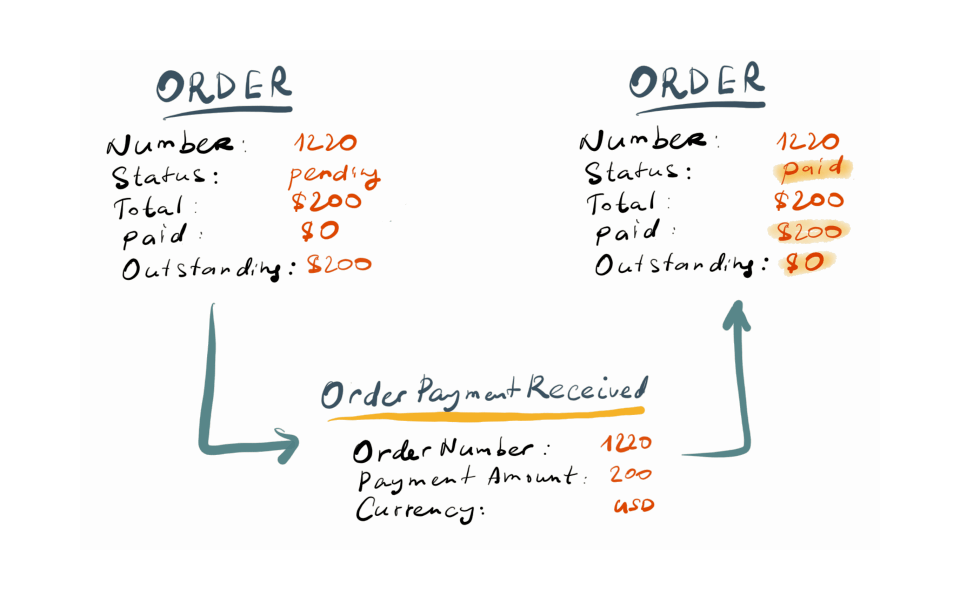 ORDER
Number: 1220
Status: pending
Total: $200
paid: $0
Outstanding: $200
ORDER
Number: 1220
Status: paid
Total: $200
paid: $200
Outstanding: $0
Order Payment Received
Order Number: 1220
Payment Amount: 200
Currency: USD